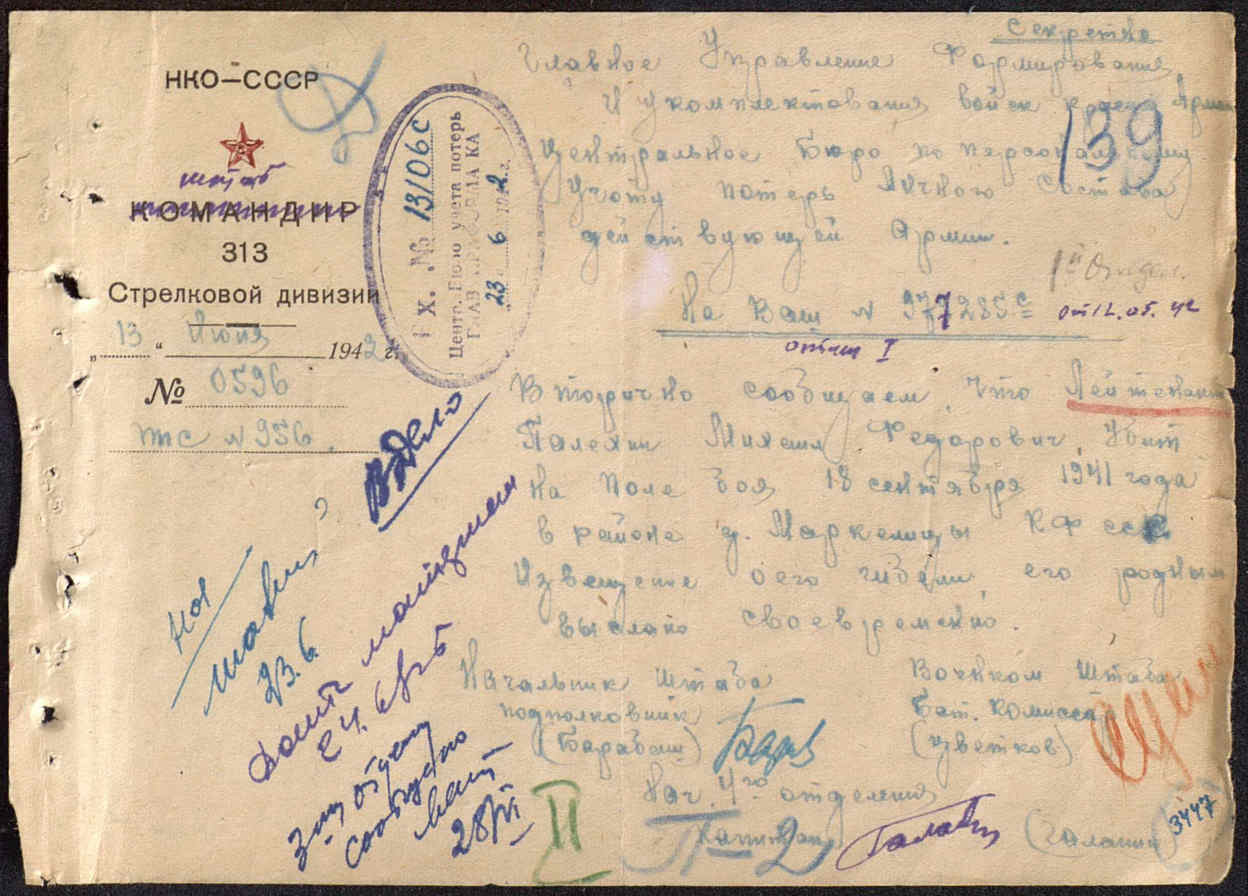 Секретно
НКО—СССР
штаб
КОМАНДИР
313
Стрелковой дивизии
„13“ Июня 1942 г.
№ 0596
ппс № 956.
ВХ. № 13106с
Центр. Бюро учета потерь
23 6 1942 г.
Главное Управление Формирования
и укомплектования войск красн. Армии
Центральное Бюро по персональному
Учоту потерь Личного Состава
действующей Армии.
139
1й Отдел.
На Ваш № 977285с от 12.05.42
отдел I
Вторично сообщаем, что Лейтенант
Палехин Михаил Федорович, Убит
на поле боя 18 сентября 1941 года
в районе д. Маркелицы КФССС
Извещение о его гибели его родным
выслано своевременно.
Начальник Штаба
подполковник
(Барабаш)
Военком Штаба
Бат. Комиссар
(Цветков)
Нач. 4го отделения
Капитан
(Галашин)
В дело
23.6.
28/VI
II
П-2
3447